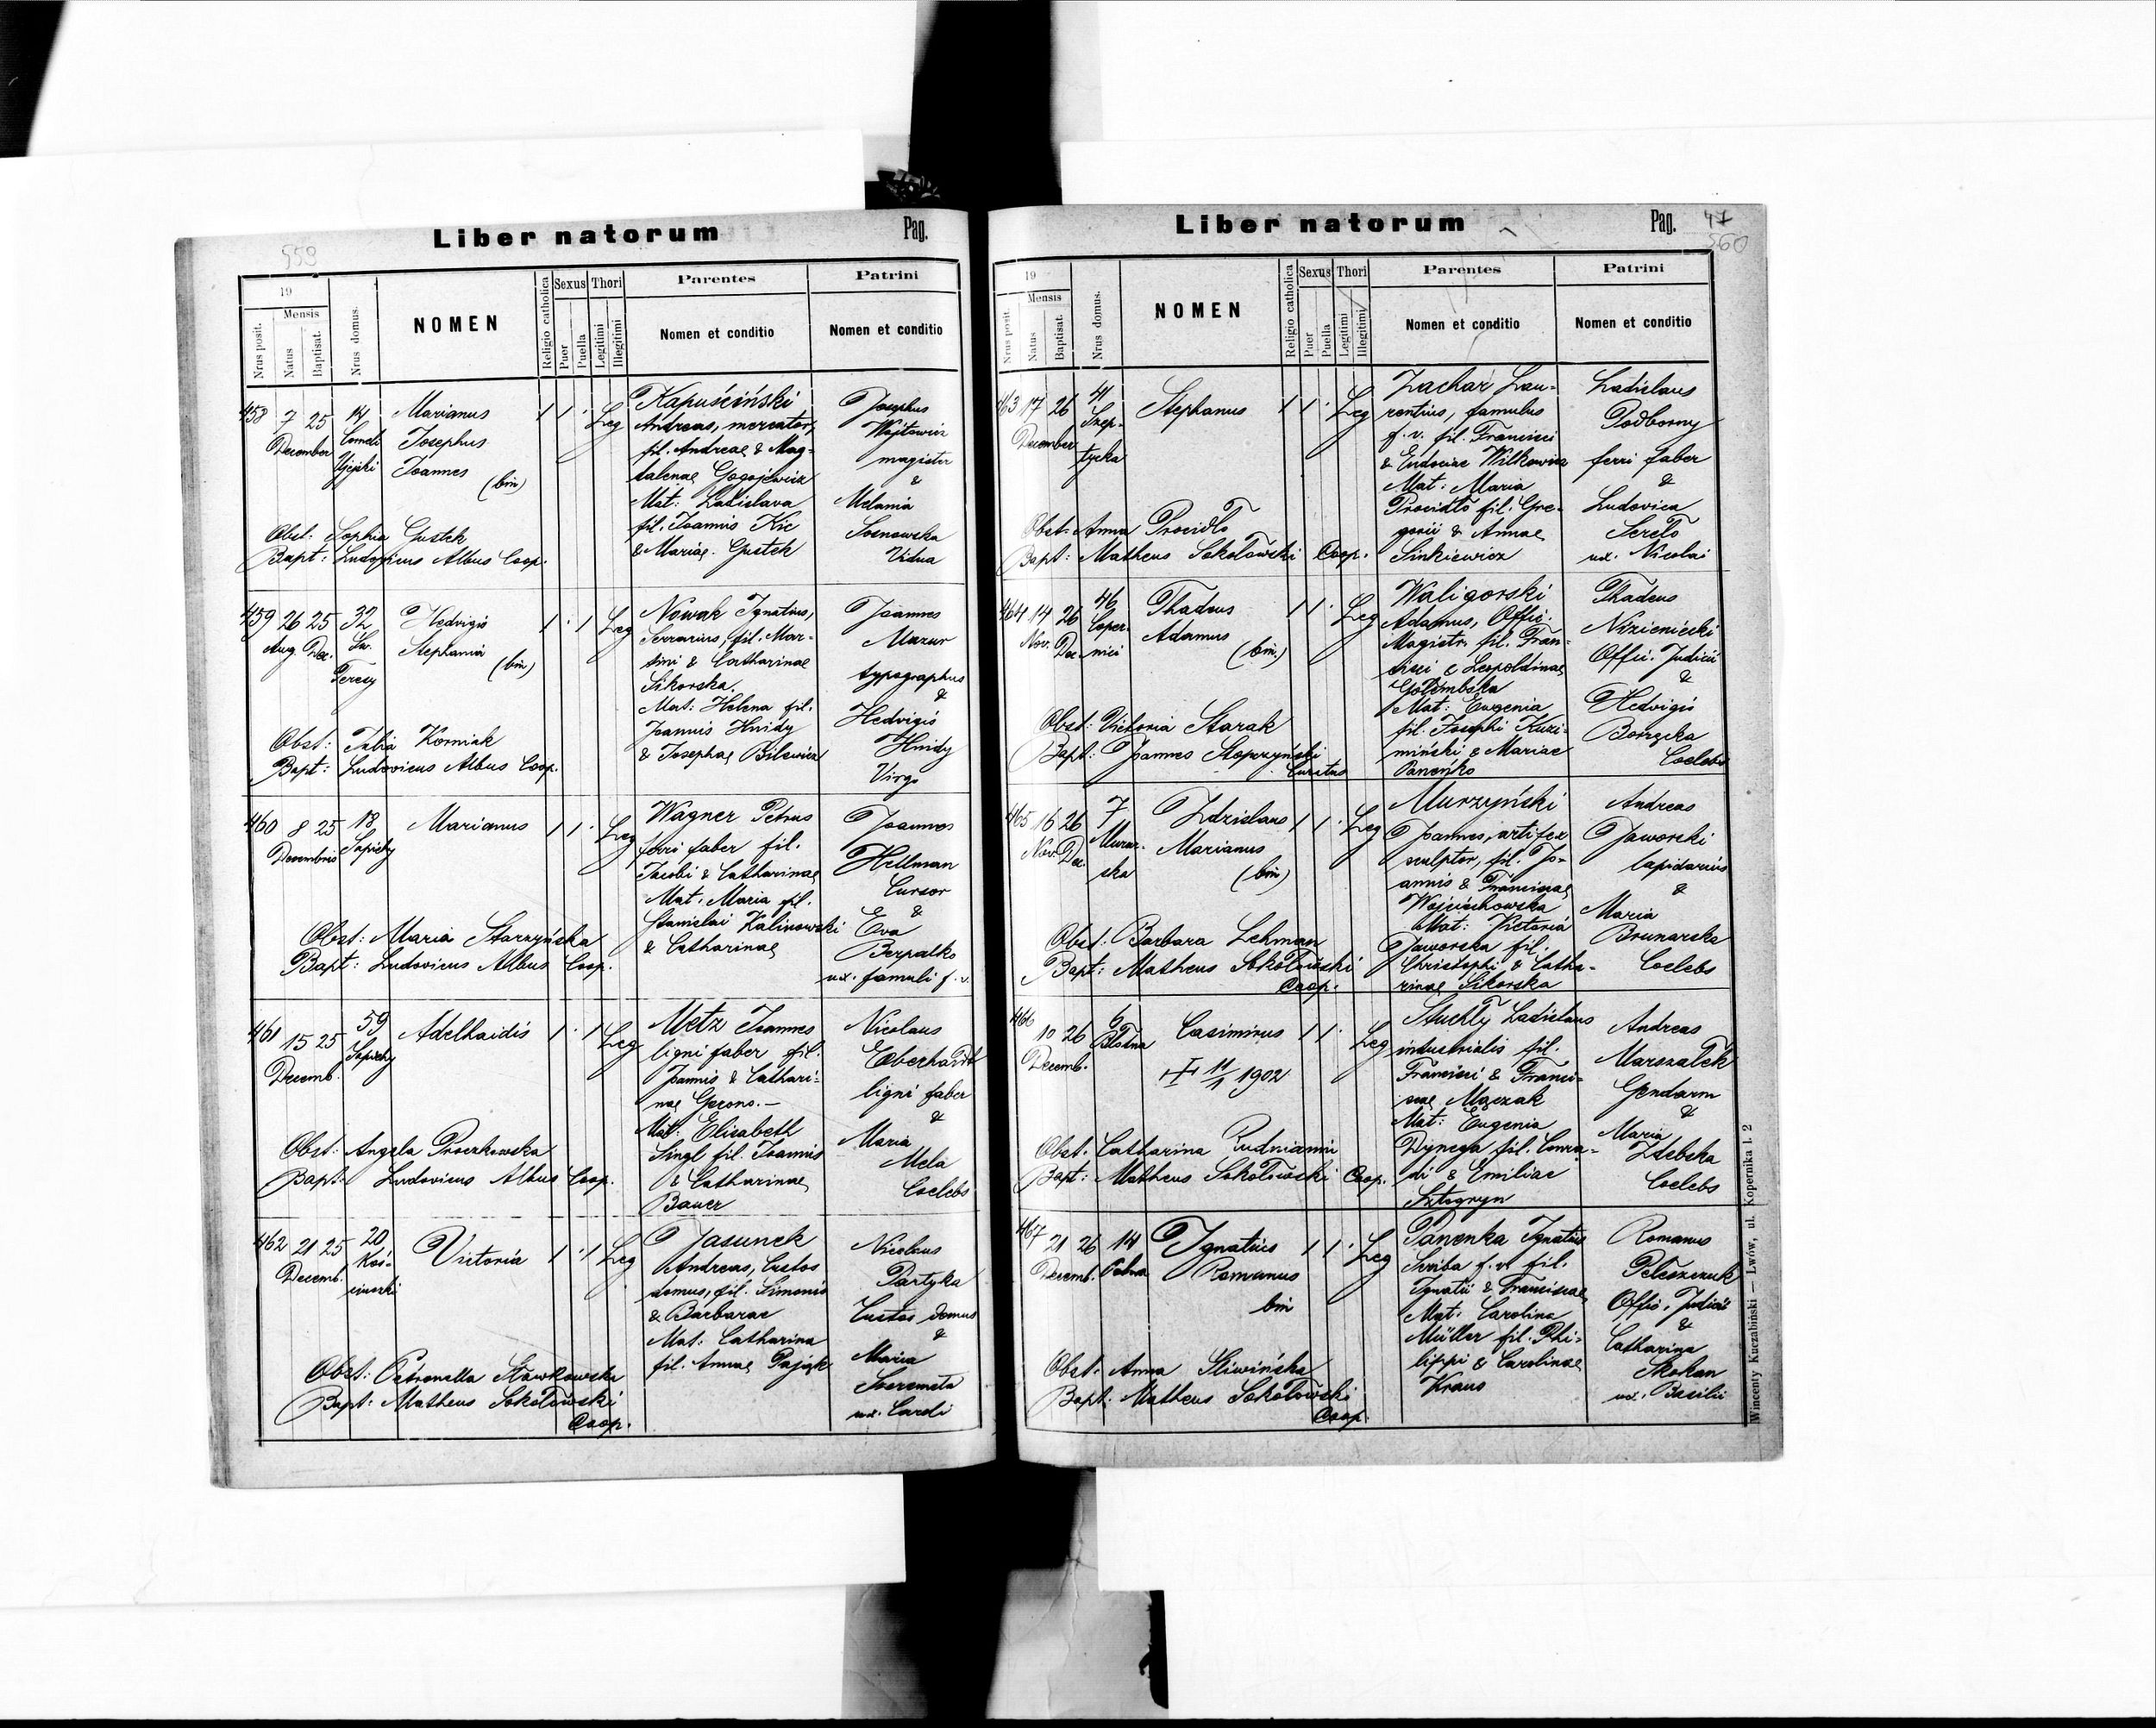 559
Liber natorum Pag.
19
Mensis
Nrus posit.
Natus
Baptisat.
Nrus domus.
NOMEN
Religio catholica
Sexus
Puer
Puella
Thori
Legitimi
Illegitimi
Parentes
Nomen et conditio
Patrini
Nomen et conditio
458 7 25 14
December
Marianus
Josephus
Joannes
(bin)
1 1 · Leg
Kapuściński
Andreas, mercator,
fil. Andreae & Mag-
dalenae Gogojewicz
Mat: Ladislava
fil. Joannis Kic
& Mariae Gustek
Josephus
Wojtowicz
magister
&
Melania
Sosnowska
Vidua
Obst: Sophia Gustek
Bapt: Ludovicus Albus Coop.
459 26 25 32
Aug. Dec. Św.
Teresy
Hedvigis
Stephania
(bin)
1 · 1 Leg
Nowak Ignatius,
serrarius, fil. Mar-
tini & Catharinae
Sikorska.
Mat: Helena fil.
Joannis Hnidy
& Josephae Bilewicz
Joannes
Mazur
typographus
&
Hedvigis
Hnidy
Virgo
Obst: Julia Korniak
Bapt: Ludovicus Albus Coop.
460 8 25 18
Decembris Sapiehy
Marianus
1 1 · Leg
Wagner Petrus
ferri faber fil.
Jacobi & Catharinae
Mat. Maria fil.
Stanislai Kalinowski
& Catharinae
Joannes
Hellman
Cursor
&
Eva
Bezpalko
ux. famuli f. v.
Obst: Maria Starzyńska
Bapt: Ludovicus Albus Coop.
461 15 25 59
Decemb. Sapiehy
Adelhaidis
1 · 1 Leg
Metz Joannes
ligni faber fil.
Joannis & Cathari-
nae Gerono.-
Mat: Elisabeth
Singl fil. Joannis
& Catharinae
Bauer
Nicolaus
Eberhardt
ligni faber
&
Maria
Mela
Coelebs
Obst: Angela Proczkowska
Bapt: Ludovicus Albus Coop.
462 21 25 20
Decemb. Koś-
ciuszki
Victoria
1 · 1 Leg
Jasunek
Andreas, Custos
domus, fil. Simonis
& Barbarae
Mat: Catharina
fil. Annae Pająk
Nicolaus
Partyka
Custos domus
&
Maria
Szeremeta
ux. Caroli
Obst: Petronella Sławkowska
Bapt: Matheus Sokołowski
Coop.
47
560
Liber natorum Pag.
19
Mensis
Nrus posit.
Natus
Baptisat.
Nrus domus.
NOMEN
Religio catholica
Sexus
Puer
Puella
Thori
Legitimi
Illegitimi
Parentes
Nomen et conditio
Patrini
Nomen et conditio
463 17 26 41
December Szep-
tycka
Stephanus
1 1 · Leg
Zachar Lau-
rentius, famulus
f. v. fil. Francisci
& Eudociae Wilkowicz
Mat: Maria
Procidło fil. Gre-
gorii & Annae
Sinkiewicz
Ladislaus
Podborny
ferri faber
&
Ludovica
Sereto
ux. Nicolai
Obst: Anna Procidło
Bapt: Matheus Sokołowski Coop.
464 14 26 46
Nov. Dec. Coper-
nici
Thadeus
Adamus
(bin.)
1 1 · Leg
Waligorski
Adamus, Offic.
Magistr. fil. Fran-
cisci & Leopoldinae
Gołembska
Mat: Eugenia
fil. Josephi Kuzi-
miński & Mariae
Paneńko
Thadeus
Nizieniecki
Offic. Judicii
&
Hedvigis
Borzęcka
Coelebs
Obst: Victoria Starak
Bapt: Joannes Stoprzyński
Curatus
465 16 26 7
Nov. Dec. Murar-
ska
Zdzislaus
Marianus
(bin)
1 1 · Leg
Murzyński
Joannes, artifex
sculptor, fil. Jo-
annis & Franciscae
Wojciechowska
Mat: Victoria
Jaworska fil.
Christophi & Catha-
rinae Sikorska
Andreas
Jaworski
lapidarius
&
Maria
Brunarska
Coelebs
Obst: Barbara Lehman
Bapt: Matheus Sokołowski
Coop.
466 10 26 6
Decemb. Błotna
Casimirus
+ 11/1 1902
1 1 · Leg
Stuchły Ladislaus
industrialis fil.
Francisci & Franci-
scae Mączak
Mat: Eugenia
Dynega fil. Conra-
di & Emiliae
Sztogryn
Andreas
Marszałek
Gendarm
&
Maria
Zdebska
Coelebs
Obst. Catharina Rudnianin
Bapt: Matheus Sokołowski Coop.
467 21 26 14
Decemb. Polna
Ignatius
Romanus
bin
1 1 · Leg
Panenka Ignatius
Scriba f. v. fil.
Ignatii & Franciscae
Mat: Carolina
Müller fil. Phi-
lippi & Carolinae
Kraus
Romanus
Peleszczuk
Offic. Judicii
&
Catharina
Skokan
ux. Basilii
Obst: Anna Śliwińska
Bapt: Matheus Sokołowski
Coop.
Wincenty Kuczabiński — Lwów, ul. Kopernika l. 2